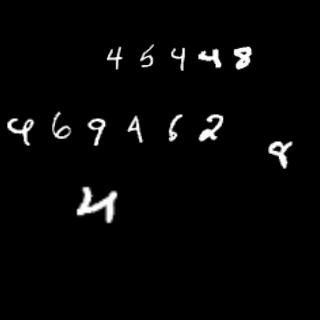 45448
469462
8
4